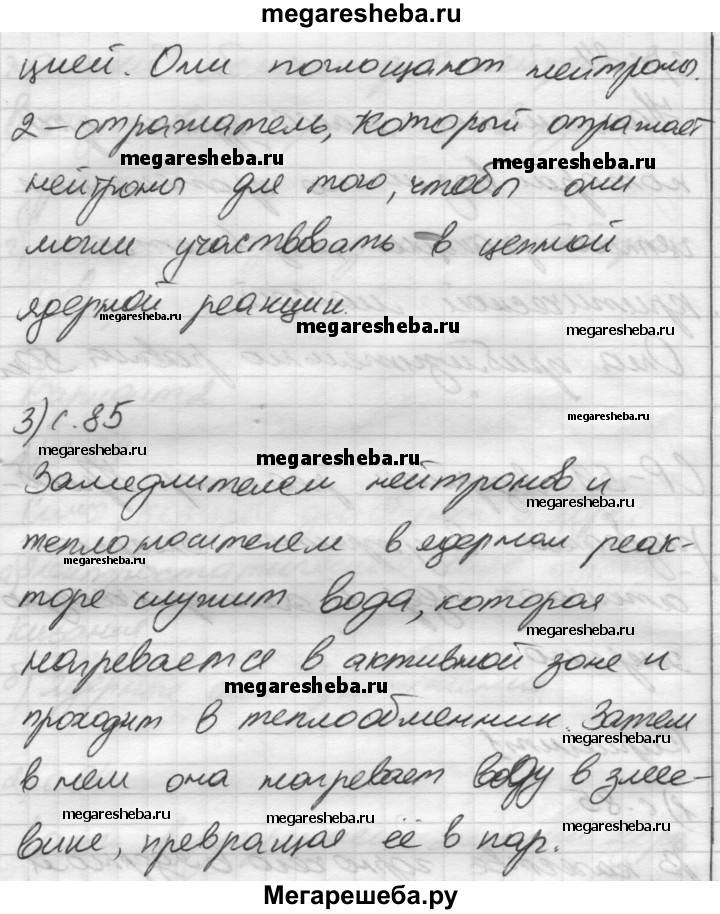 megaresheba.ru
цией. Они поглощают нейтроны.
2 – отражатель, который отражает
megaresheba.ru megaresheba.ru
нейтроны для того, чтобы они
могли участвовать в цепной
ядерной реакции.
megaresheba.ru megaresheba.ru megaresheba.ru
3) с. 85
megaresheba.ru
megaresheba.ru megaresheba.ru
Замедлителем нейтронов и
megaresheba.ru
теплоносителем в ядерном реак-
megaresheba.ru
торе служит вода, которая
megaresheba.ru
нагревается в активной зоне и
megaresheba.ru
проходит в теплообменник. Затем
megaresheba.ru
в нем она нагревает воду в змее-
megaresheba.ru megaresheba.ru
вике, превращая её в пар.
Мегарешеба.ру